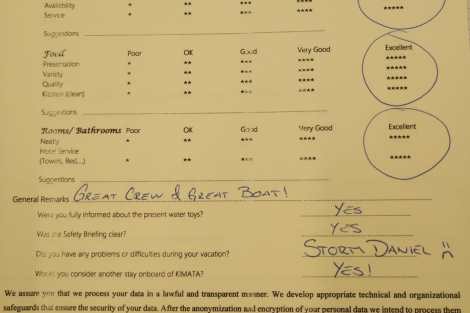 Availability * ** *** **** *****
Service * ** *** **** *****
Suggestions
Food Poor OK Good Very Good Excellent
Presentation * ** *** **** *****
Variety * ** *** **** *****
Quality * ** *** **** *****
Kitchen (clean) * ** *** **** *****
Suggestions
Rooms/ Bathrooms Poor OK Good Very Good Excellent
Neatly * ** *** **** *****
Hotel Service
(Towels, Bed,...) * ** *** **** *****
Suggestions
General Remarks GREAT CREW & GREAT BOAT!
Were you fully informed about the present water toys? YES
Was the Safety Briefing clear? YES
Did you have any problems or difficulties during your vacation? STORM DANIEL :(
Would you consider another stay onboard of KIMATA? YES!
We assure you that we process your data in a lawful and transparent manner. We develop appropriate technical and organizational
safeguards that ensure the security of your data. After the anonymization and encryption of your personal data we intend to process them